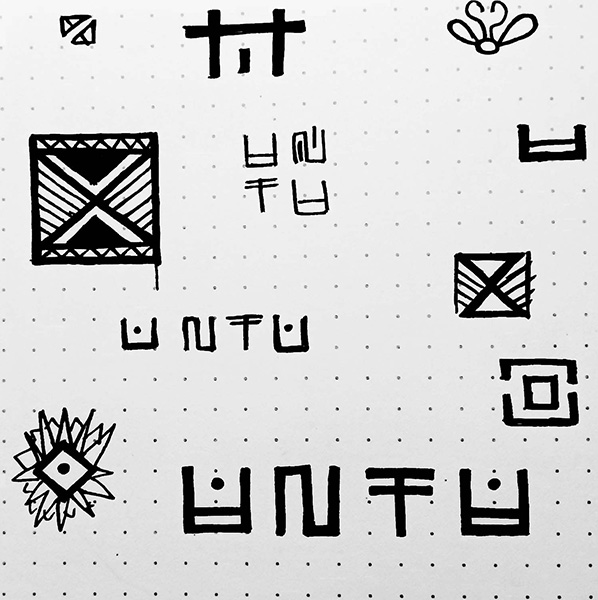 UN
TU
UNTU
UNTU